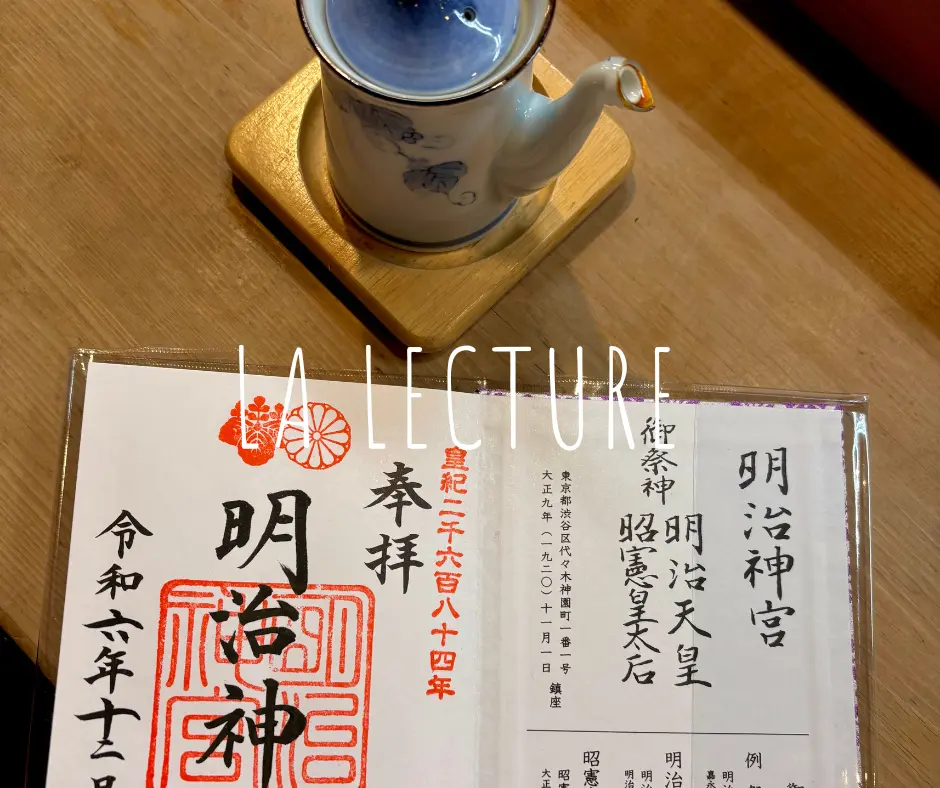 LA LECTURE
明治神宮
御祭神
明治天皇
昭憲皇太后
東京都渋谷区代々木神園町一番一号
大正九年（一九二〇）十一月一日 鎮座
皇紀二千六百八十四年
奉拝
明治神
令和六年十二